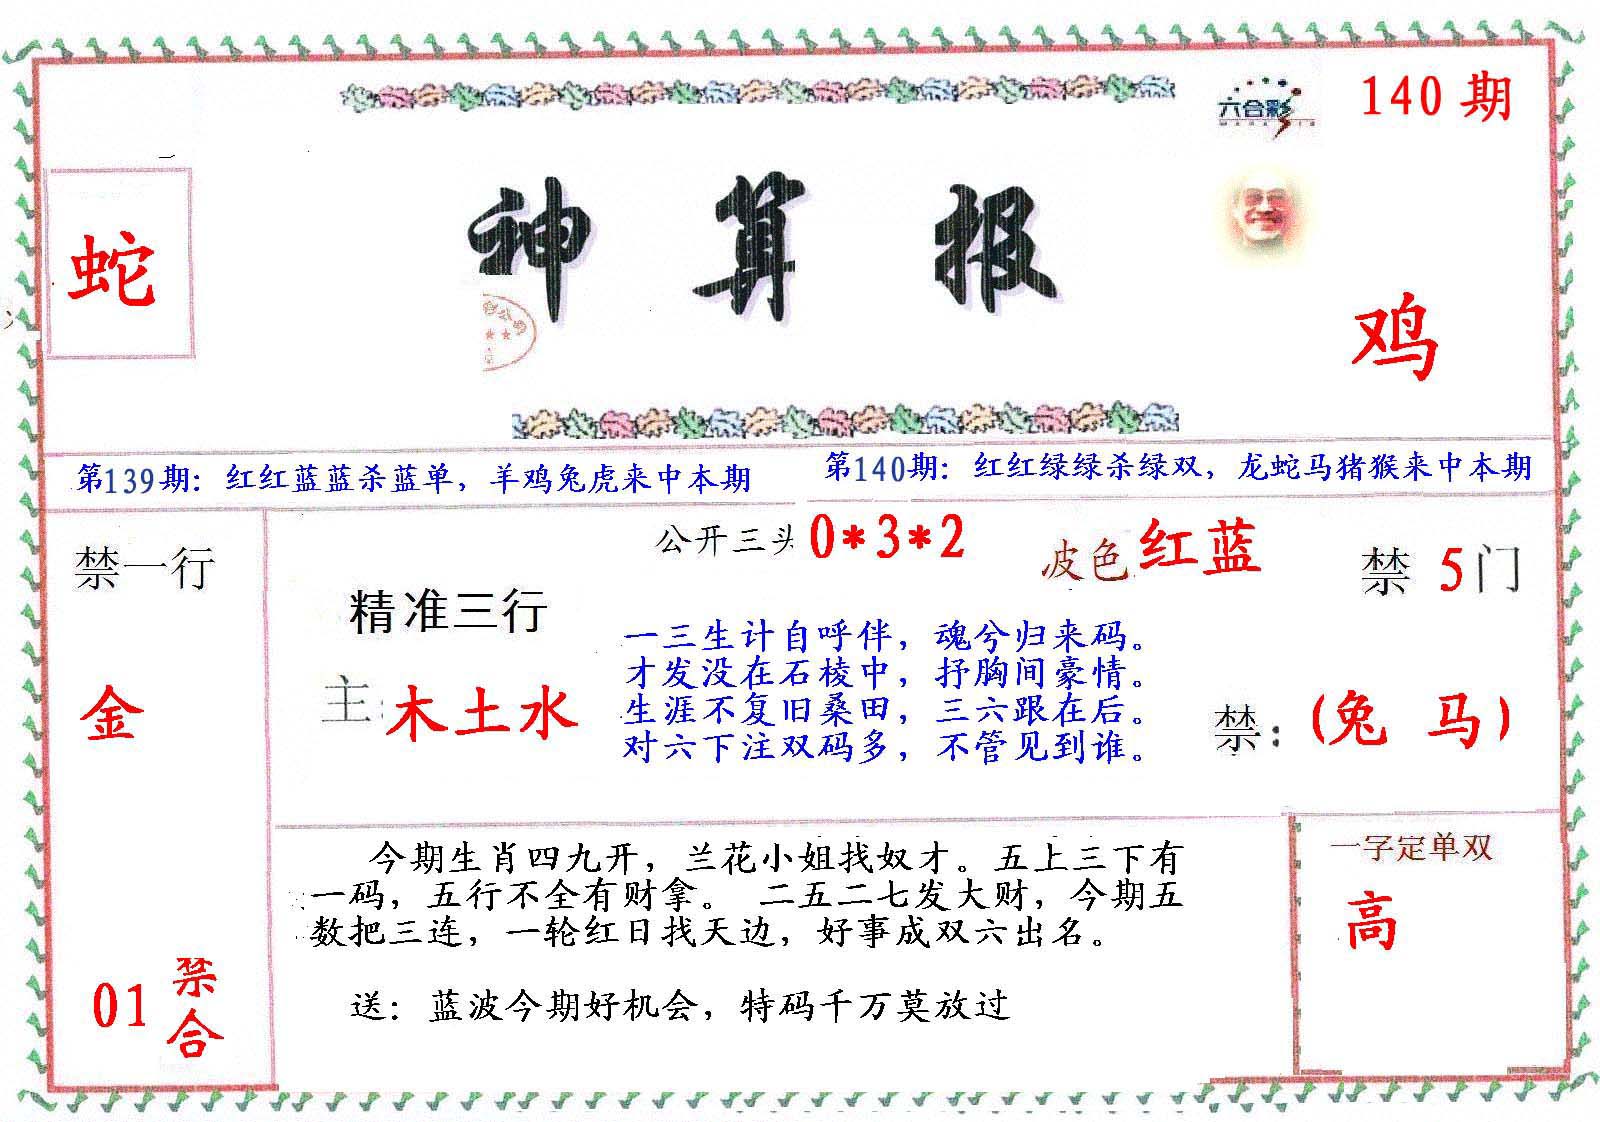 六合彩
140 期
蛇
神算报
鸡
第139期：红红蓝蓝杀蓝单，羊鸡兔虎来中本期
第140期：红红绿绿杀绿双，龙蛇马猪猴来中本期
禁一行
金
01
禁合
公开三头 0*3*2
波色 红蓝
禁 5 门
精准三行
主: 木土水
一三生计自呼伴，魂兮归来码。
才发没在石棱中，抒胸间豪情。
生涯不复旧桑田，三六跟在后。
对六下注双码多，不管见到谁。
禁: (兔 马)
今期生肖四九开，兰花小姐找奴才。五上三下有
一码，五行不全有财拿。 二五二七发大财，今期五
数把三连，一轮红日找天边，好事成双六出名。
送：蓝波今期好机会，特码千万莫放过
一字定单双
高